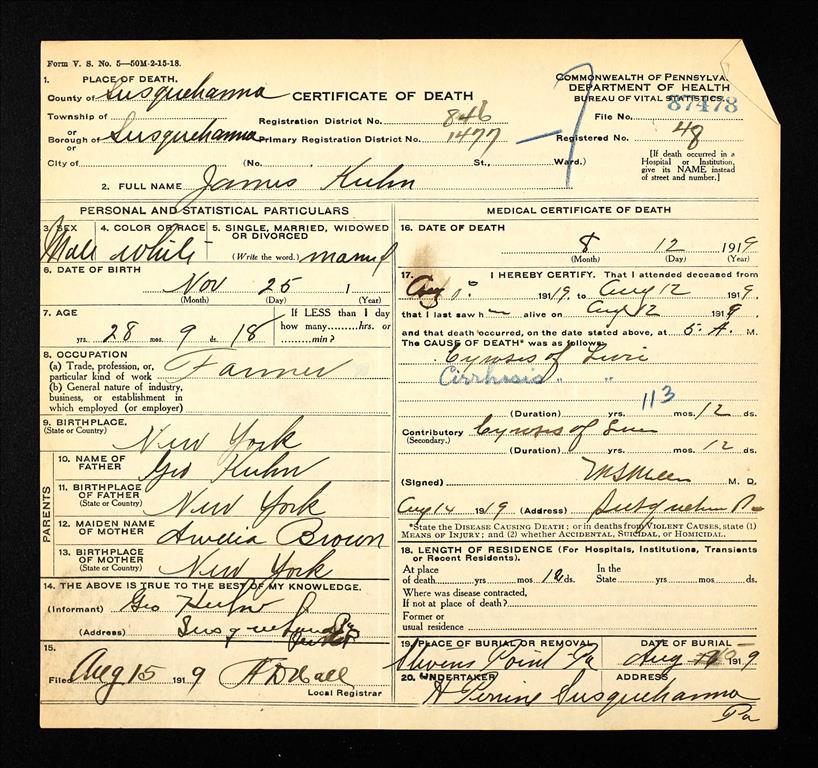 Form V. S. No. 5—50M-2-15-18.
1. PLACE OF DEATH.
County of Susquehanna
Township of
or
Borough of Susquehanna
or
City of
CERTIFICATE OF DEATH
Registration District No. 846
Primary Registration District No. 1477
(No. St., Ward.)
COMMONWEALTH OF PENNSYLVA
DEPARTMENT OF HEALTH
BUREAU OF VITAL STATISTICS.
File No. 87478
Registered No. 48
[If death occurred in a Hospital or Institution, give its NAME instead of street and number.]
2. FULL NAME James Kuhn
PERSONAL AND STATISTICAL PARTICULARS
3. SEX Male
4. COLOR OR RACE White
5. SINGLE, MARRIED, WIDOWED OR DIVORCED
(Write the word.) married
6. DATE OF BIRTH
Nov 25 1
(Month) (Day) (Year)
7. AGE
28 yrs. 9 mos. 18 ds.
If LESS than 1 day how many hrs. or min?
8. OCCUPATION
(a) Trade, profession, or, particular kind of work Farmer
(b) General nature of industry, business, or establishment in which employed (or employer)
9. BIRTHPLACE
(State or Country) New York
PARENTS
10. NAME OF FATHER Geo Kuhn
11. BIRTHPLACE OF FATHER
(State or Country) New York
12. MAIDEN NAME OF MOTHER Brown
13. BIRTHPLACE OF MOTHER
(State or Country) New York
14. THE ABOVE IS TRUE TO THE BEST OF MY KNOWLEDGE.
(Informant) Geo Kuhn
(Address) Susquehanna Pa
15.
Filed Aug 15 1919
Local Registrar
MEDICAL CERTIFICATE OF DEATH
16. DATE OF DEATH
8 12 1919
(Month) (Day) (Year)
17. I HEREBY CERTIFY. That I attended deceased from
Aug 1919, to Aug 12 1919.
that I last saw h alive on Aug 12 1919
and that death occurred, on the date stated above, at 5 A. M.
The CAUSE OF DEATH* was as follows:
Cyroses of Livir
Cirrhosis " "
113
(Duration) yrs. mos. 12 ds.
Contributory Cyroses of Liver
(Secondary.)
(Duration) yrs. mos. 12 ds.
(Signed) M. D.
Aug 14 1919 (Address) Susquehanna Pa
*State the DISEASE CAUSING DEATH; or in deaths from VIOLENT CAUSES, state (1)
MEANS OF INJURY; and (2) whether ACCIDENTAL, SUICIDAL, OR HOMICIDAL.
18. LENGTH OF RESIDENCE (For Hospitals, Institutions, Transients or Recent Residents).
At place of death yrs mos. 12 ds.
In the State yrs mos ds.
Where was disease contracted,
If not at place of death?
Former or
usual residence
19. PLACE OF BURIAL OR REMOVAL
Stevens Point Pa
DATE OF BURIAL
Aug 15 1919
20. UNDERTAKER
ADDRESS
H Perrine Susquehanna
Pa